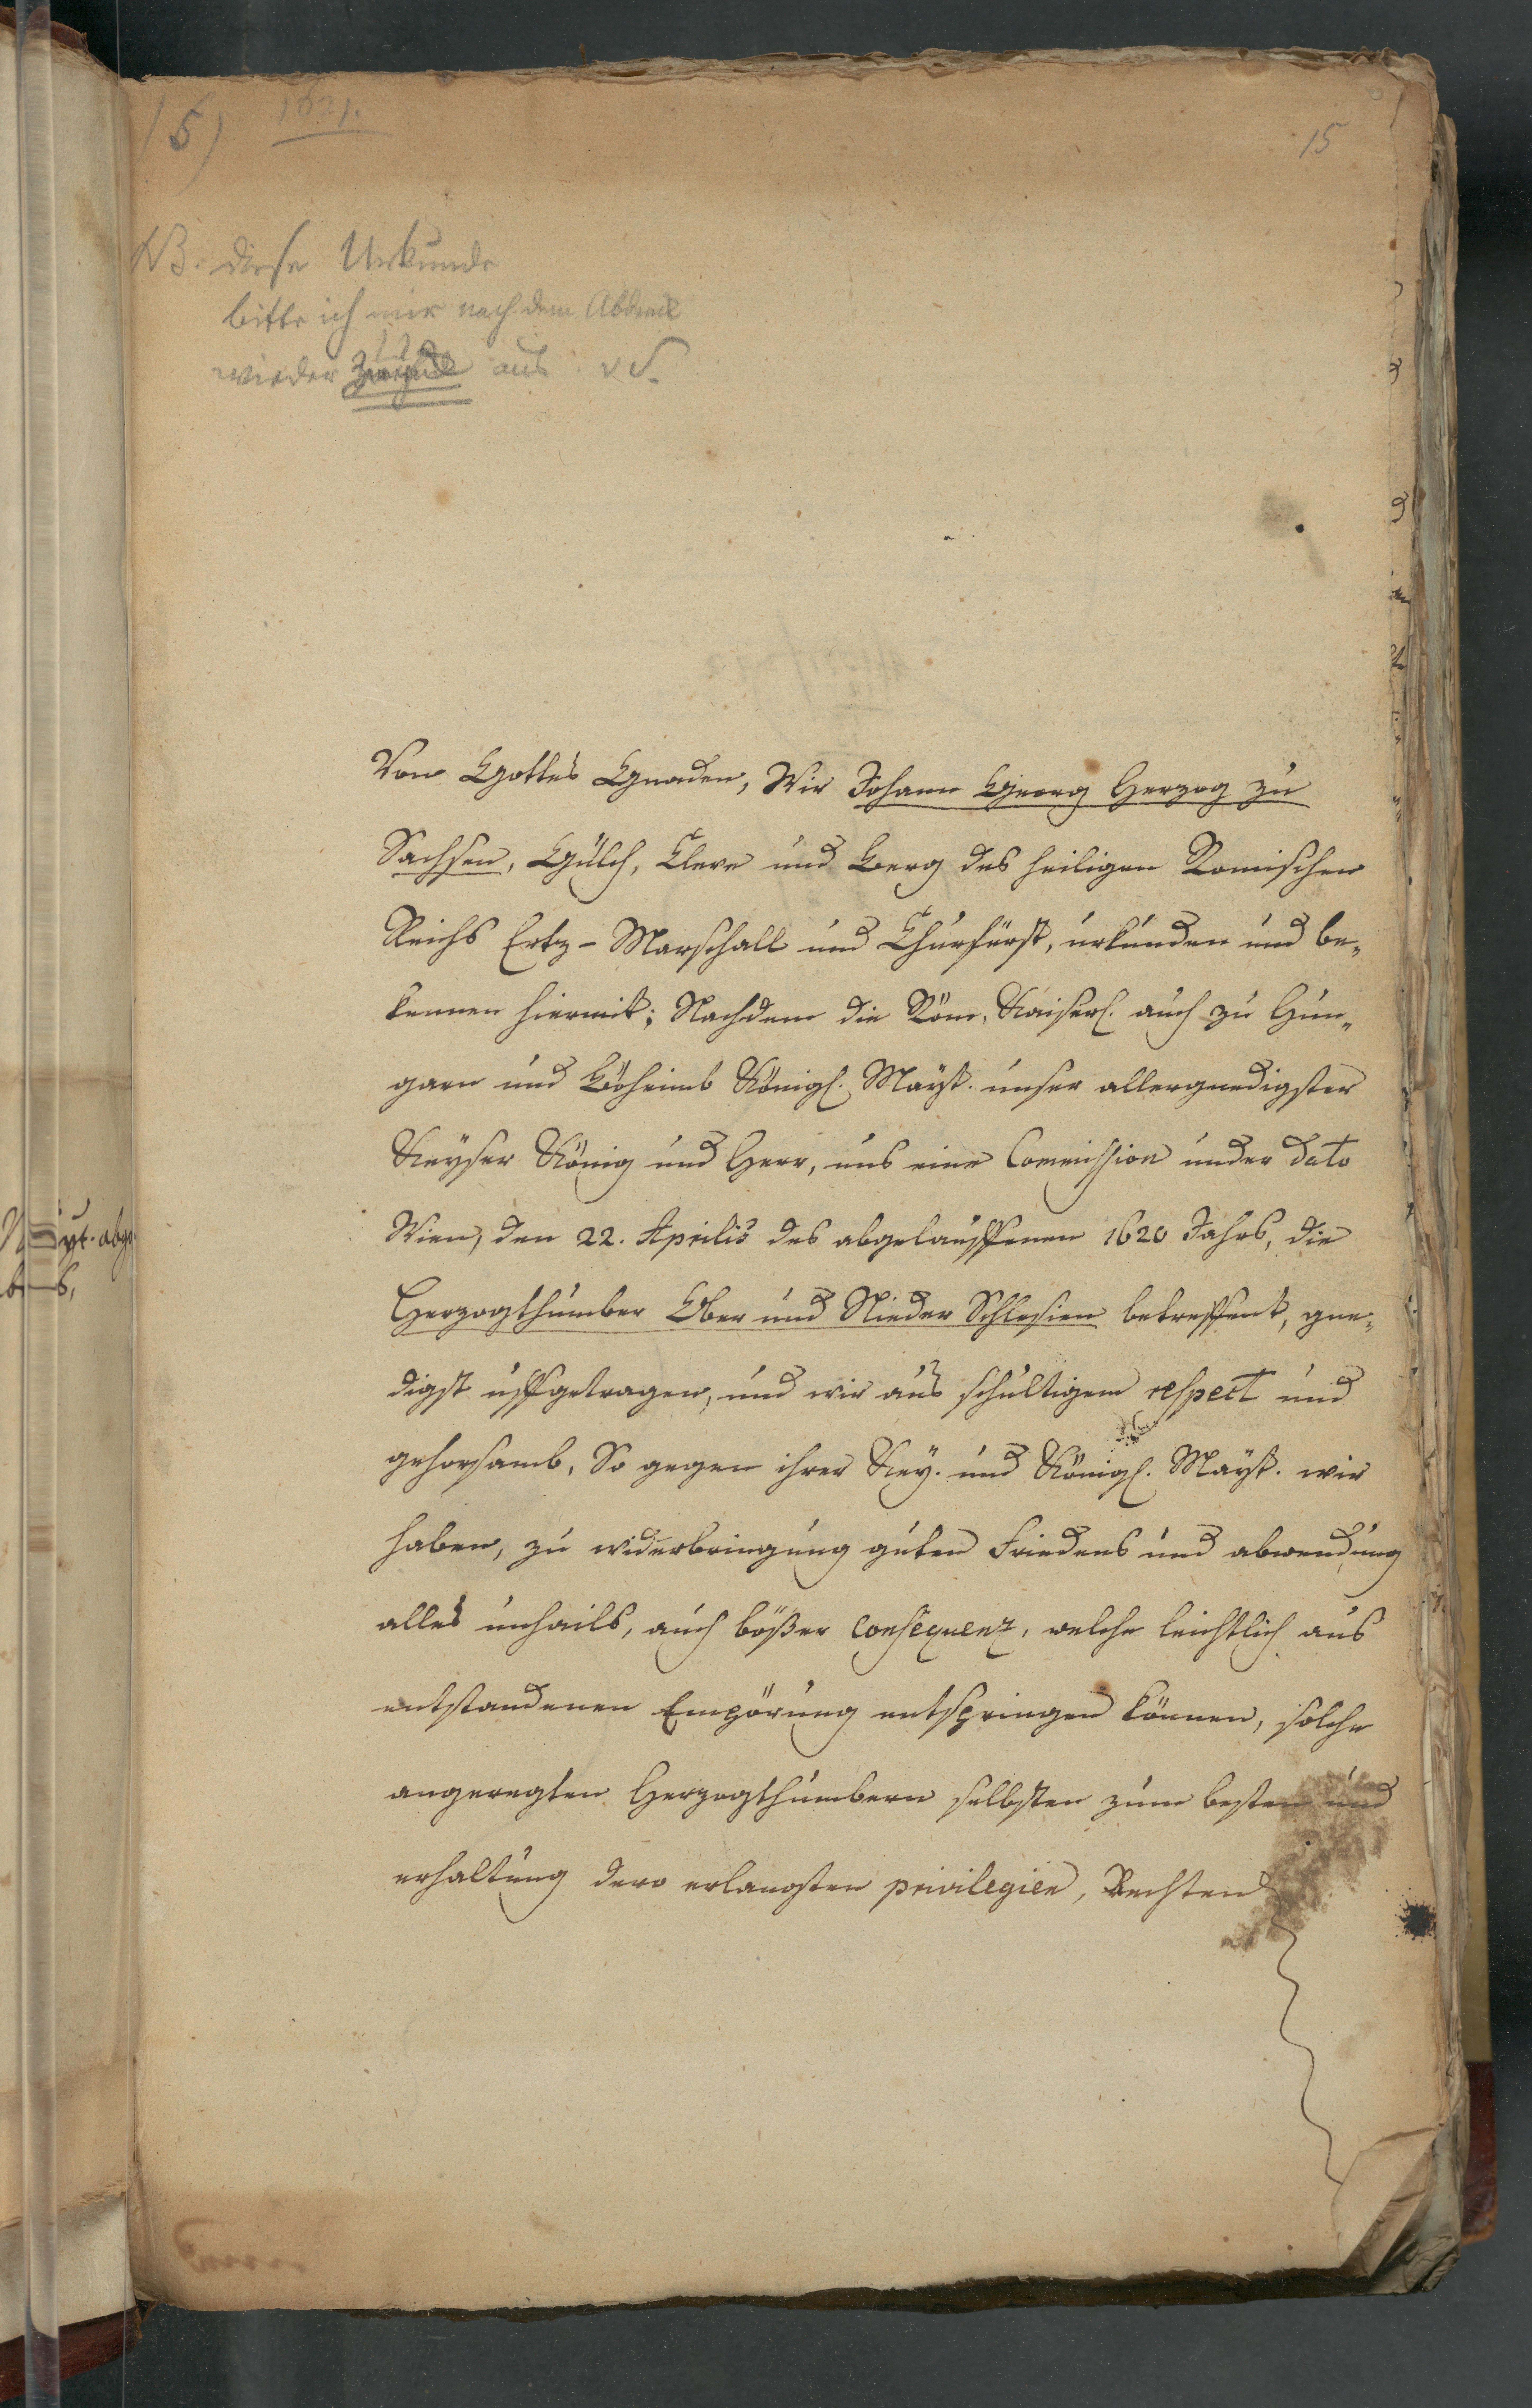 15) 1621.
15
NB. diese Urkunde
bitte ich mir nach dem Abdruck
wieder zurück aus. v S.
Von Gottes Gnaden, Wir Johann Georg Herzog zu
Sachsen, Gülch, Cleve und Berg des heiligen Romischen
Reichs Ertz-Marschall und Churfürst, urkunden und be-
kennen hiermit; Nachdem die Röm. Kaiserl. auch zu Hun-
garn und Böheimb Königl. Mayst. unser allergnedigster
Keyser König und Herr, uns eine Commission under dato
Wien, den 22. Aprilis des abgelauffenen 1620 Jahrs, die
Herzogthumber Ober und Nieder Schlesien betreffent, gne-
digst uffgetragen, und wir aus schultigem respect und
gehorsamb, So gegen ihrer Key. und Königl. Mayst. wir
haben, zu widerbringung guten Friedens und abwendung
alles unhails, auch bößer consequenz, welche leichtlich aus
entstandenen Empörung entspringen können, solche
angeregten Herzogthumbern selbsten zum besten und
erhaltung dero erlangten privilegien, Rechten